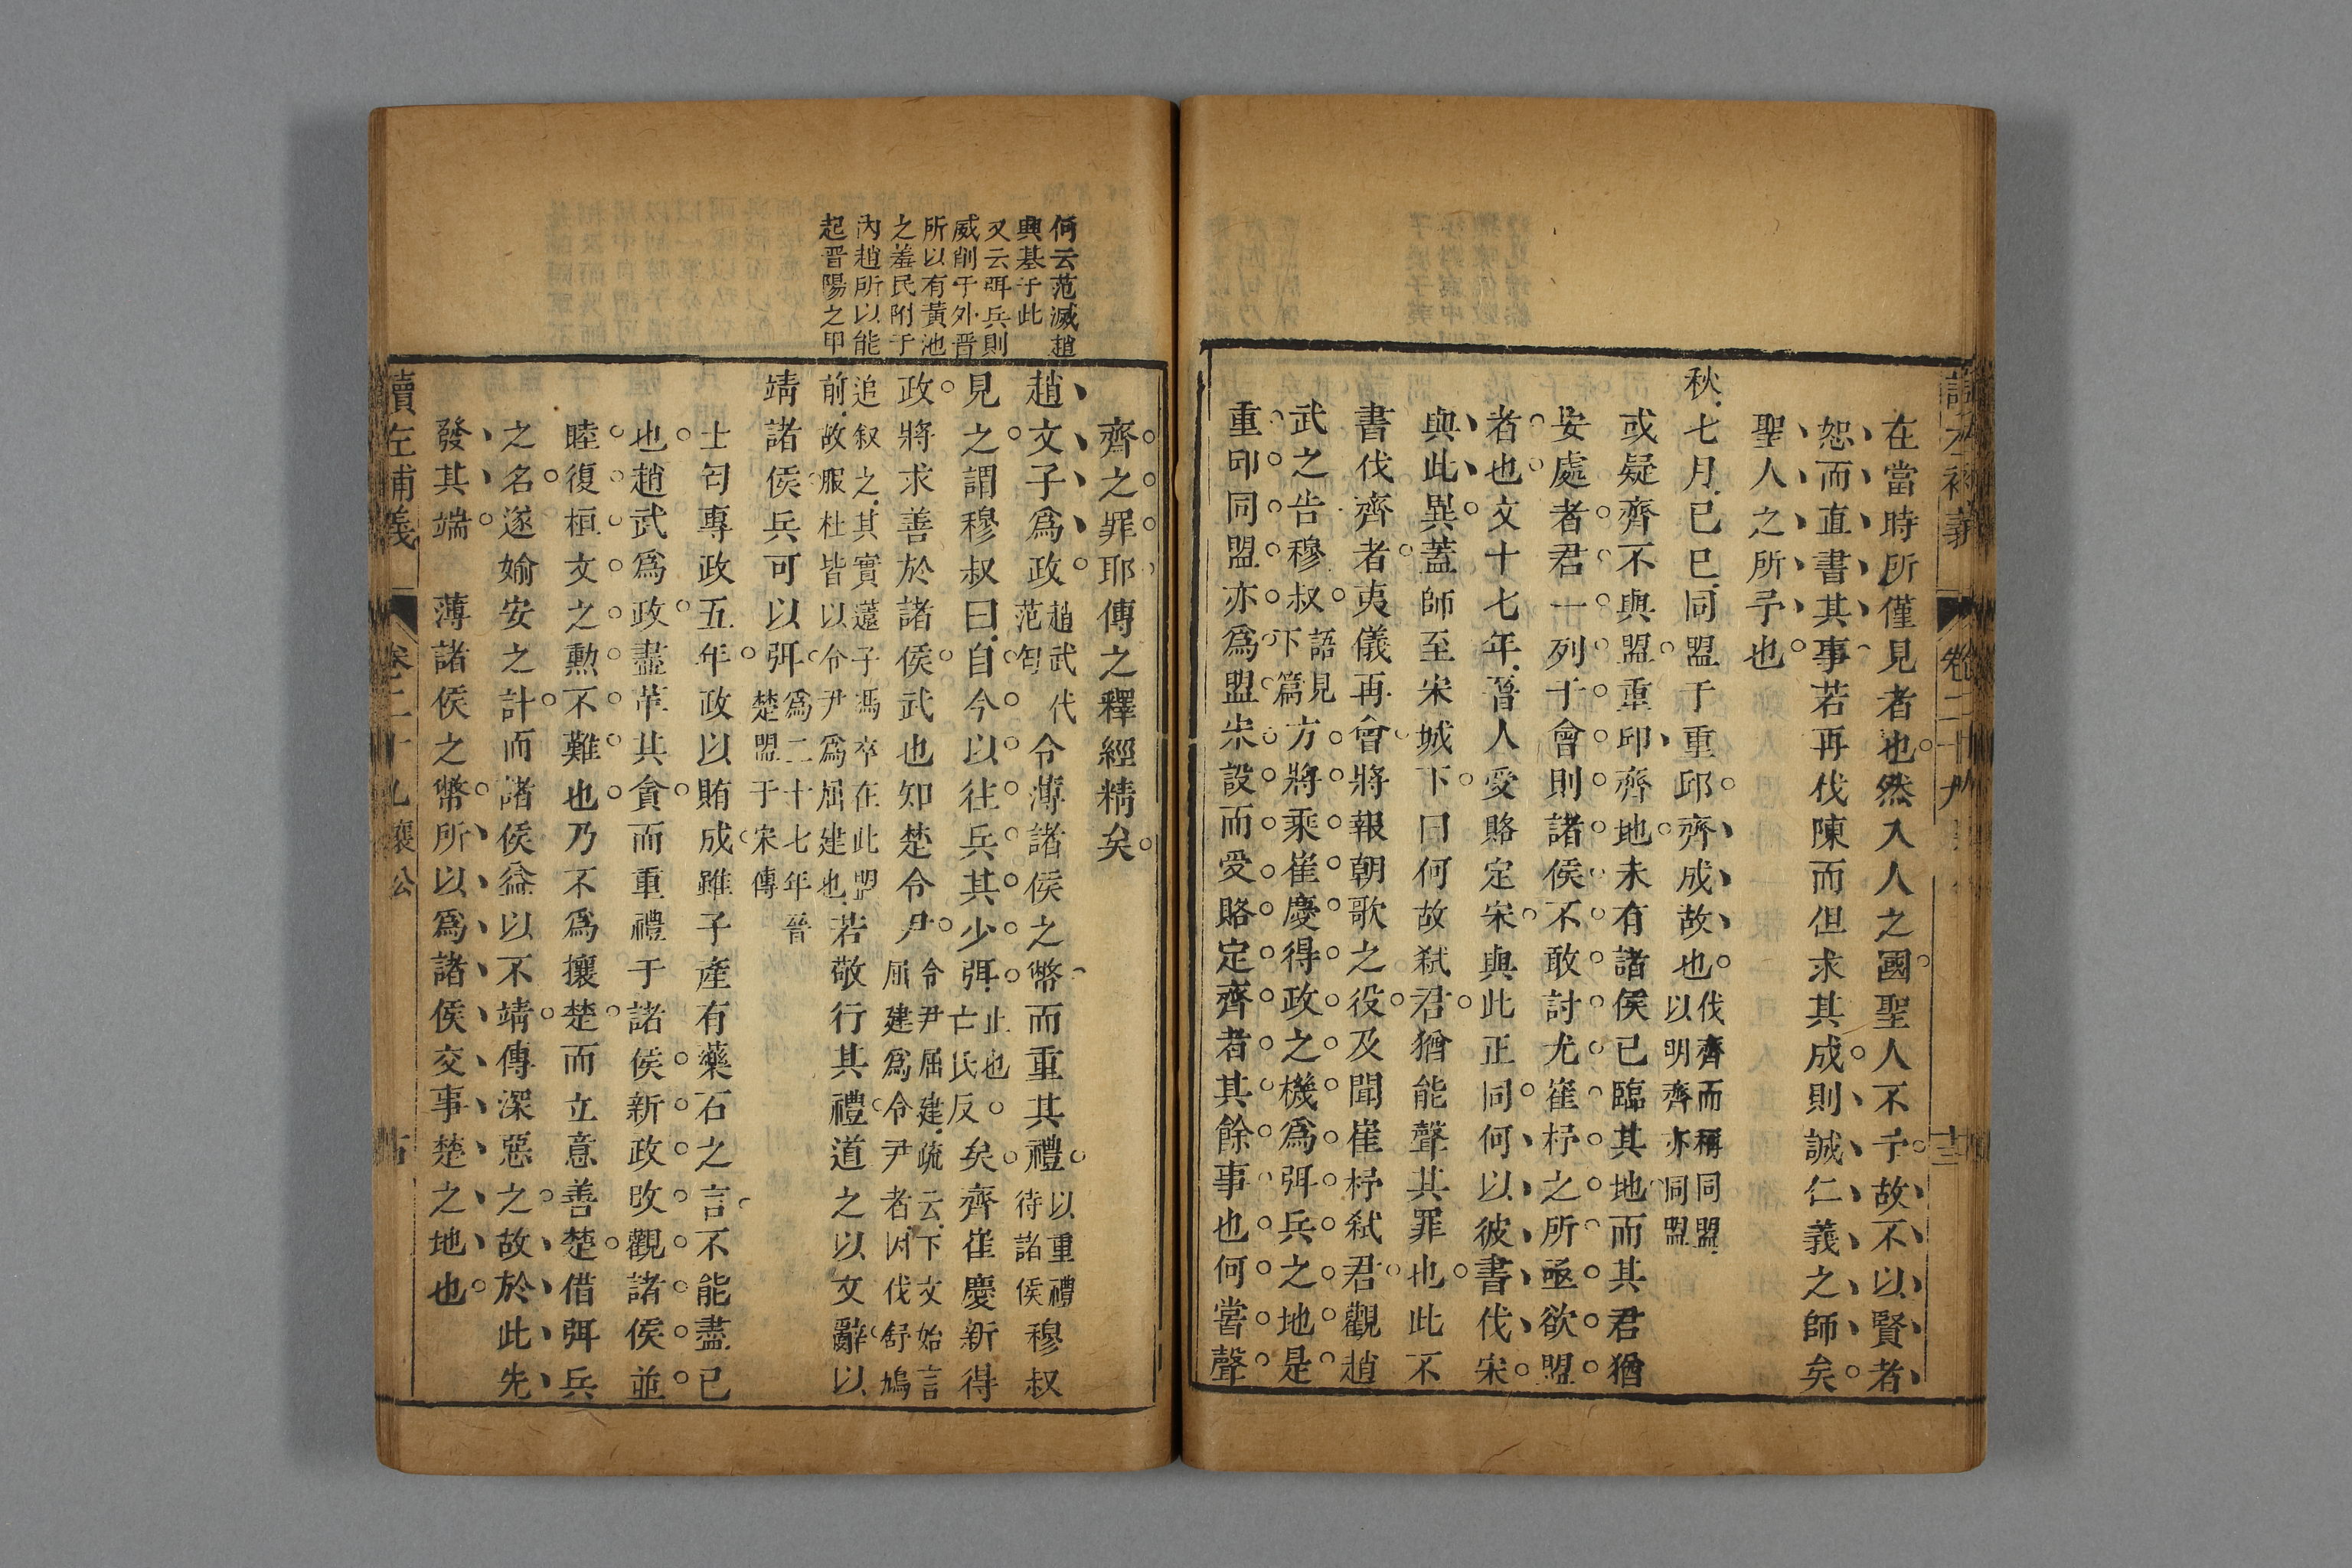 讀左補義
卷二十九
在當時所僅見者也然入人之國聖人不予故不以賢者
恕而直書其事若再伐陳而但求其成則誠仁義之師矣
聖人之所予也
秋七月己巳同盟于重邱齊成故也伐齊而稱同盟以明齊亦同盟
或疑齊不與盟重印齊地未有諸侯已臨其地而其君猶
安處者君一列于會則諸侯不敢討尤崔杼之所亟欲盟
者也文十七年晉人受賂定宋與此正同何以彼書伐宋
與此異蓋師至宋城下曰何故弒君猶能聲其罪也此不
書伐齊者夷儀再會將報朝歌之役及聞崔杼弒君觀趙
武之告穆叔語見下篇方將乘崔慶得政之機為弭兵之地是
重印同盟亦為盟宋設而受賂定齊者其餘事也何嘗聲
何云范滅趙
興基于此
又云弭兵則
威削于外晉
所以有黃池
之羞民附于
內趙所以能
起晉陽之甲
齊之罪耶傳之釋經精矣
趙文子為政趙武代范匄令薄諸侯之幣而重其禮以重禮待諸侯穆叔
見之謂穆叔曰自今以往兵其少弭止也亡氏反矣齊崔慶新得
政將求善於諸侯武也知楚令尹令尹屈建疏云下文始言屈建為令尹者因伐舒鳩
追叙之其實薳子馮卒在此盟前故服杜皆以令尹為屈建也若敬行其禮道之以文辭以
靖諸侯兵可以弭為二十七年晉楚盟于宋傳
士匄專政五年政以賄成雖子產有藥石之言不能盡已
也趙武為政盡革其貪而重禮于諸侯新政攸觀諸侯並
睦復桓文之勳不難也乃不為攘楚而立意善楚借弭兵
之名遂媮安之計而諸侯益以不靖傳深惡之故於此先
發其端 薄諸侯之幣所以為諸侯交事楚之地也
讀左補義
卷二十九 襄公